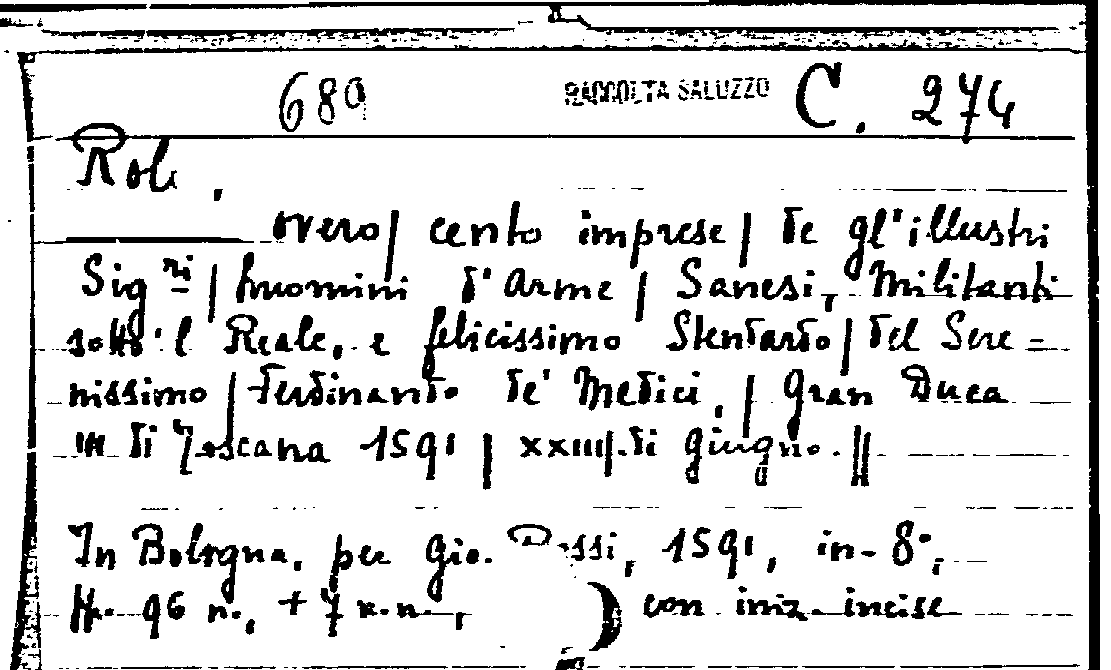 689 RACCOLTA SALUZZO C. 274
Rolo,
overo | cento imprese | de gl'illustri
Sig.ri | huomini d'Arme | Sanesi, Militanti
sotto 'l Reale, e felicissimo Stendardo | del Sere=
nissimo | Ferdinando de' Medici, | Gran Duca
III di Toscana 1591 | XXIIII. di giugno. ||
In Bologna, per Gio. Rossi, 1591, in-8°,
ff. 96 n., + 7 n.n., con iniz. incise